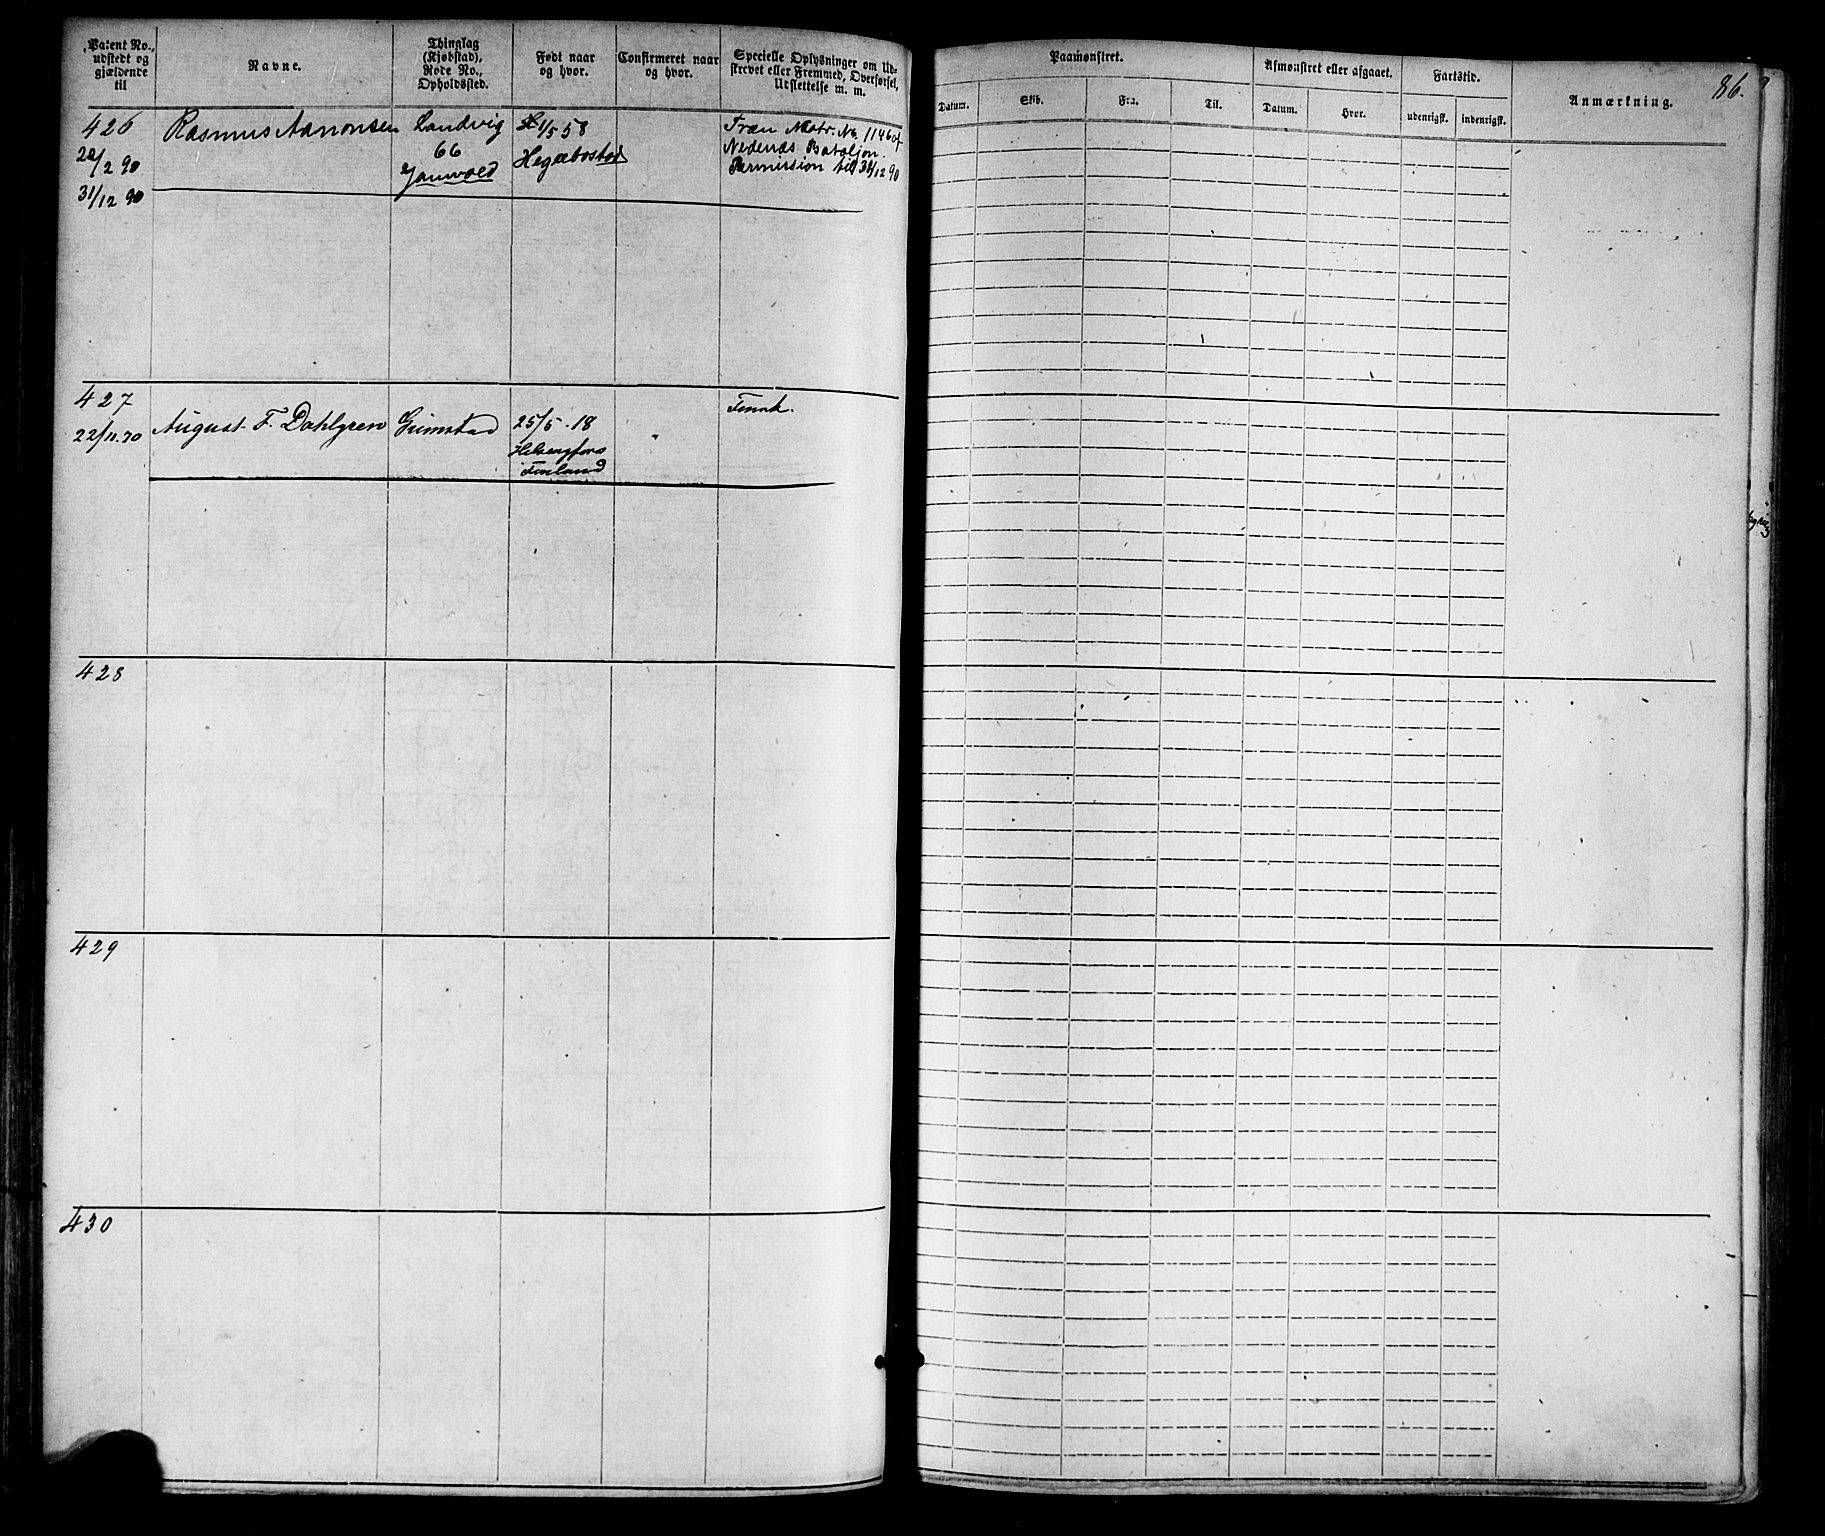 Patent No.,
udstedt og
gjældende
til
Navne.
Thinglag
(Kjøbstad),
Rode No.,
Opholdssted.
Født naar
og hvor.
Confirmeret naar
og hvor.
Specielle Oplysninger om Ud-
skrevet eller Fremmed, Overførsel,
Udslettelse m. m.
Paamønstret.
Datum.
Skib.
Fra.
Til.
Afmønstret eller afgaaet.
Datum.
Hvor.
Fartstid.
udenrigsk.
indenrigsk.
Anmærkning.
86.
426
20/2 90
31/12 90
Rasmus Aanonsen
Landvig
66
1/5 58
Hegæbostad
Træn Matr. No. 1146 af
Nedenæs Bataljon.
Permission til 31/12 90
427
22/11.70
August F. Dahlgren
Grimstad
25/5.18
Helsengfors
Finland
"
428
429
430